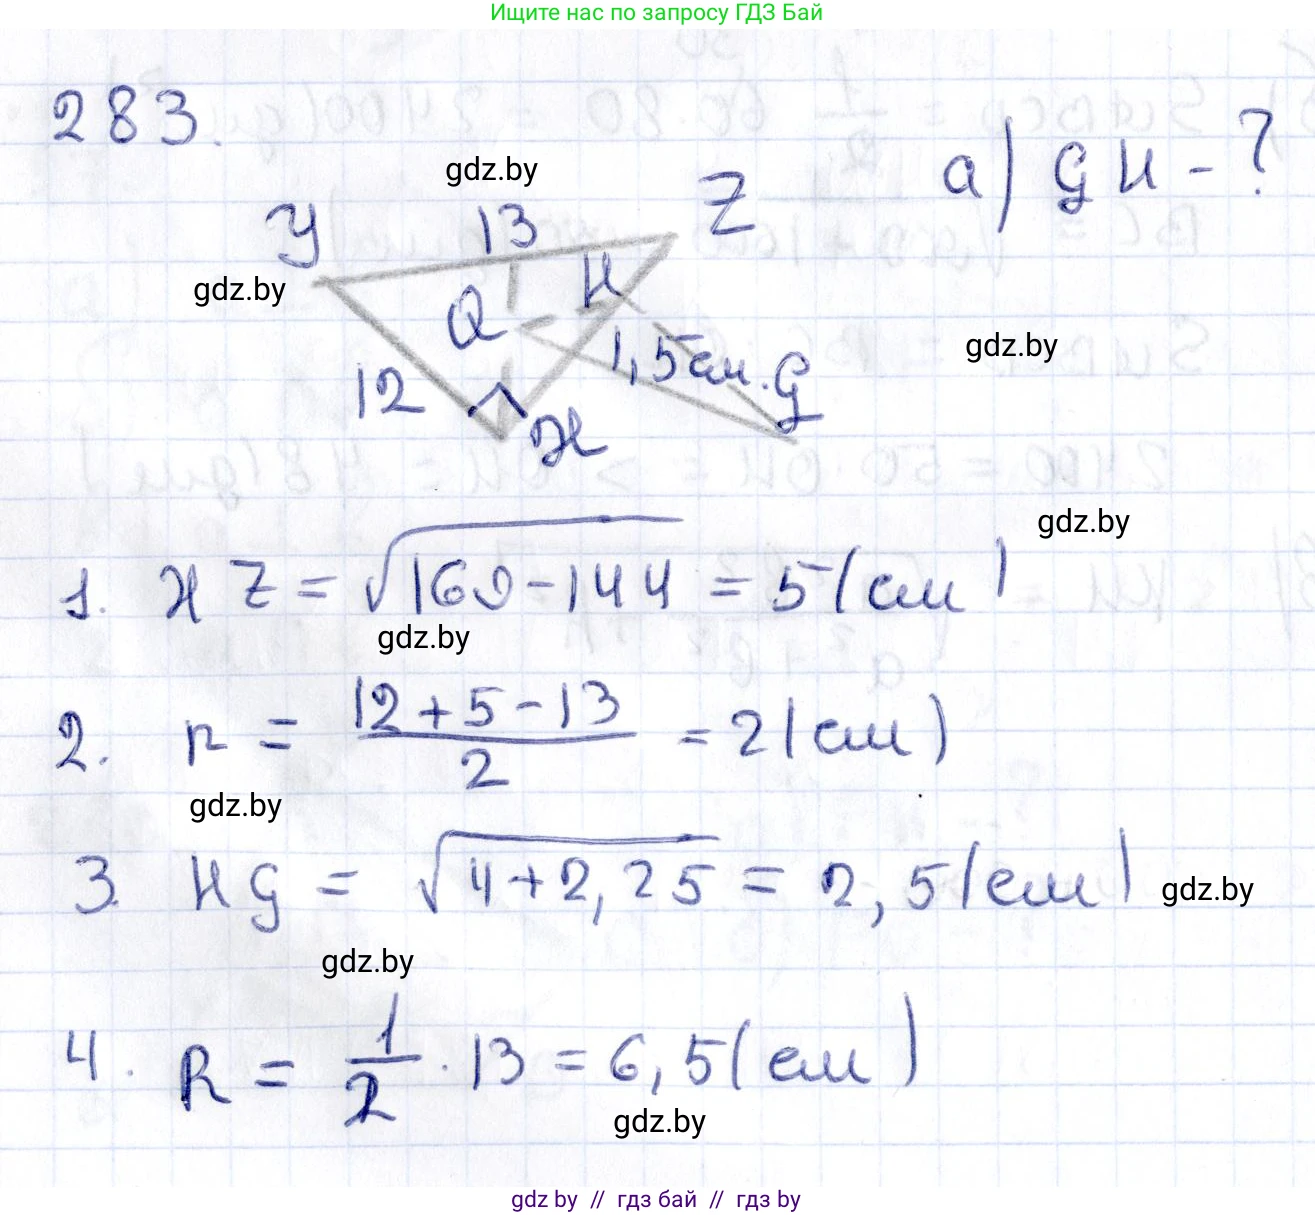 Ищите нас по запросу ГДЗ Бай
283.
a) GH - ?
gdz.by
Y 13 Z
gdz.by
Q H
1,5 см. G
gdz.by
12
X
gdz.by
1. XZ = √169-144 = 5 (см)
gdz.by
2. r = 12+5-13 / 2 = 2 (см)
gdz.by
3. HG = √4+2,25 = 2,5 (см)
gdz.by
gdz.by
4. R = 1/2 · 13 = 6,5 (см)
gdz.by
gdz by // гдз бай // гдз by